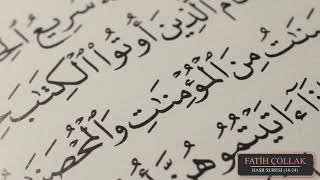 سَرِيعُ
الَّذِينَ أُوتُوا الْكِتَابَ
مِنَ الْمُؤْمِنَاتِ وَالْمُحْصَنَاتُ
آتَيْتُمُوهُنَّ
FATİH ÇOLLAK
HAŞR SURESİ (18-24)